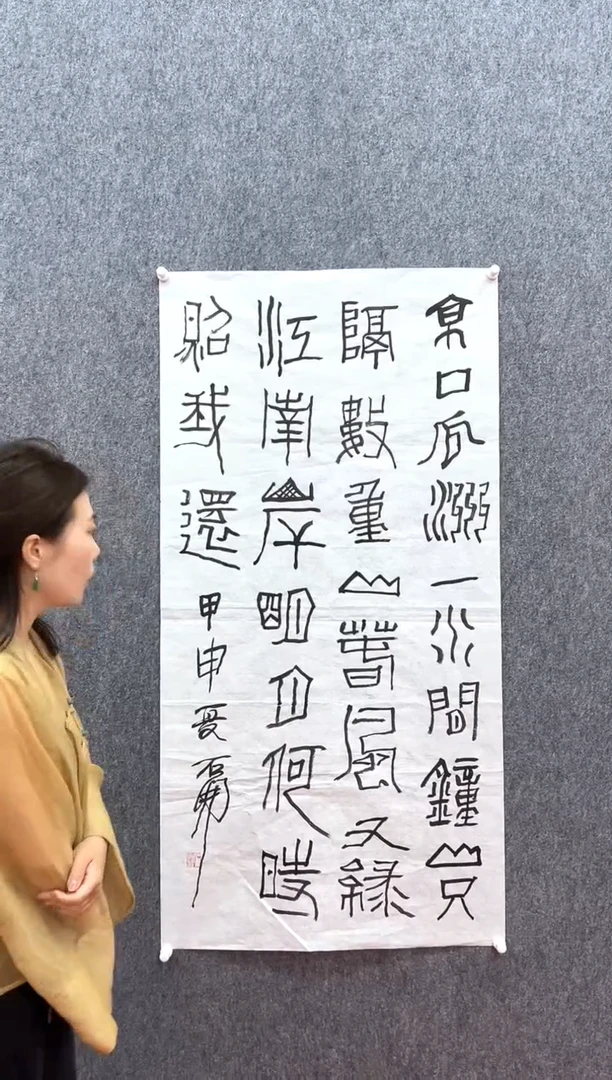 京口瓜洲一水間鐘山只
隔數重山春風又綠
江南岸明月何時
照我還 甲申夏石